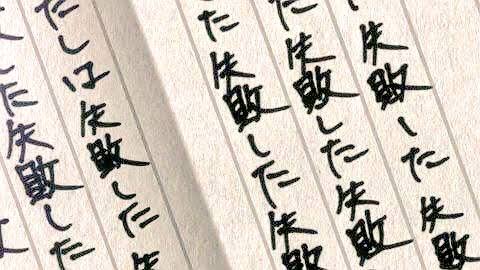 失敗した失敗
た失敗した失敗
た失敗した失敗
たしは失敗した失
した失敗した